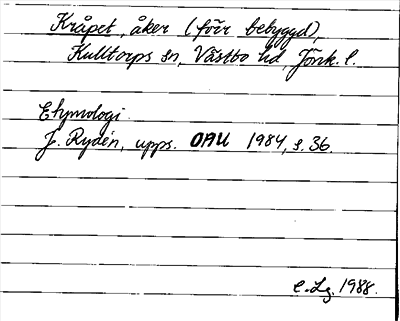 Kråpet, åker (förr bebyggd),
Kulltorps sn, Västbo hd, Jönk. l.
Etymologi.
J. Rydén, upps. OAU 1984, s. 36.
e. Lg. 1988.